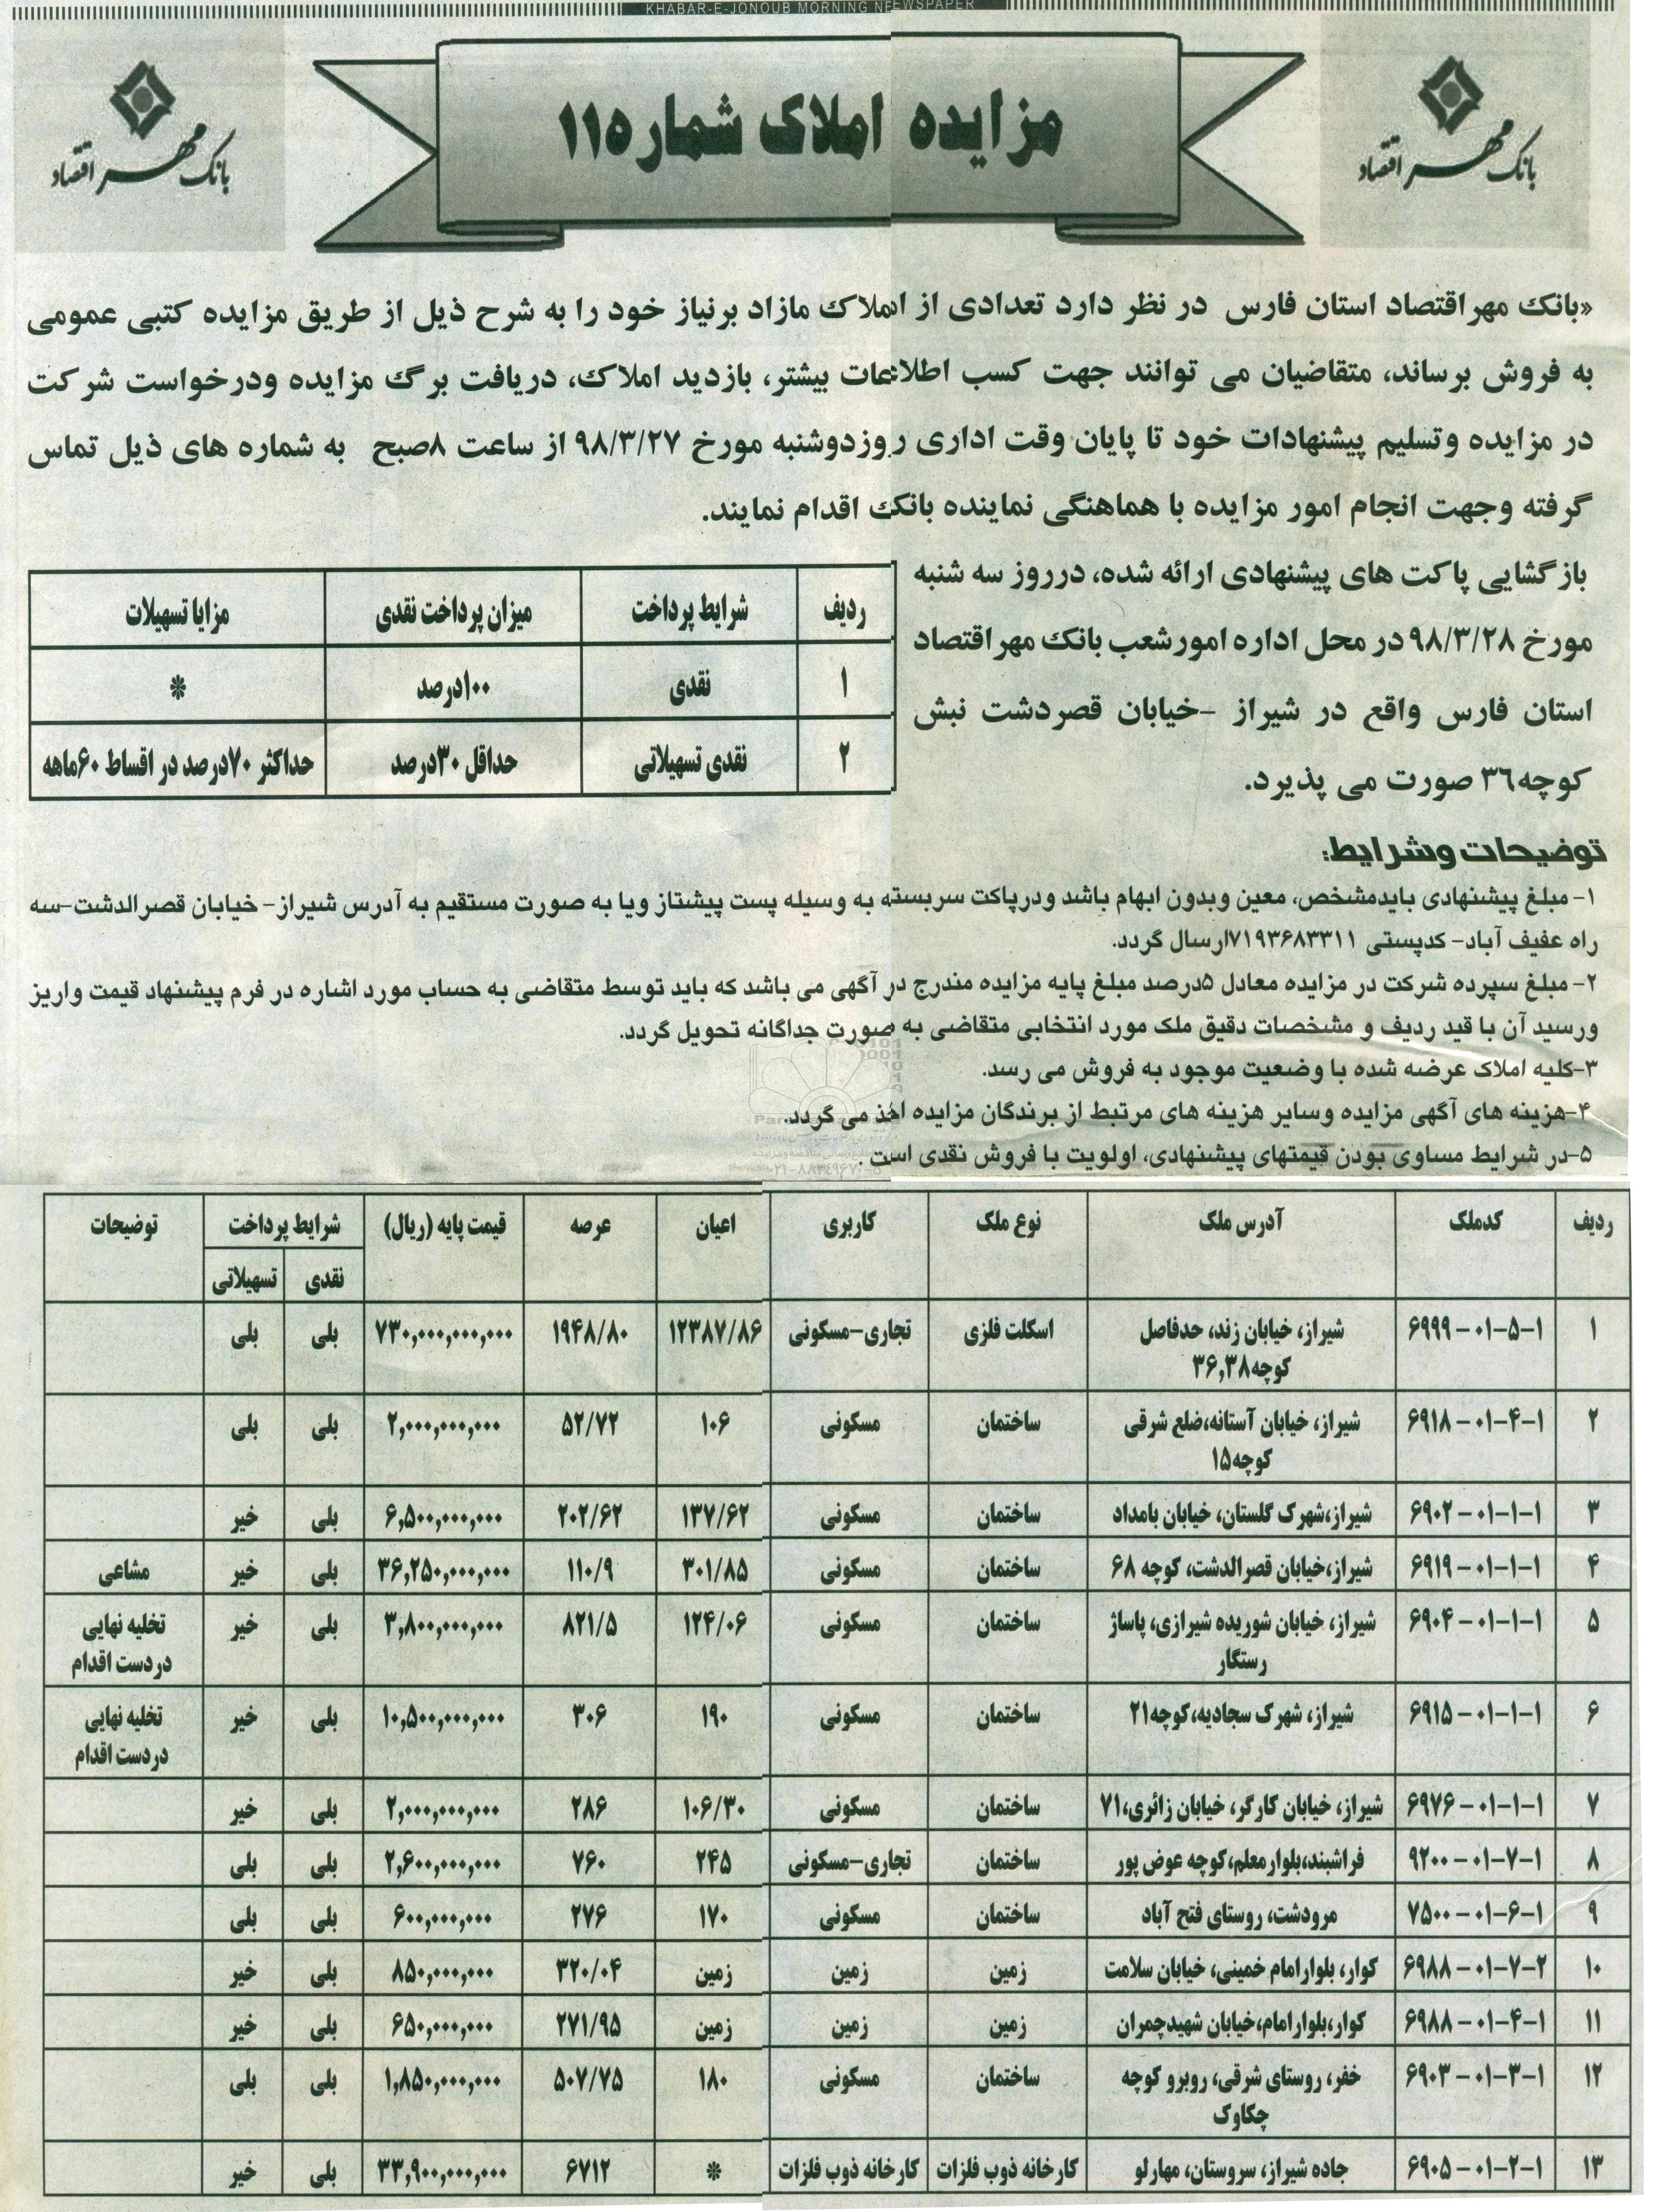 KHABAR-E-JONOUB MORNING NEEWSPAPER
بانک مهر اقتصاد
مزایده املاک شماره ۱۱
بانک مهر اقتصاد
«بانک مهر اقتصاد استان فارس در نظر دارد تعدادی از املاک مازاد برنیاز خود را به شرح ذیل از طریق مزایده کتبی عمومی
به فروش برساند، متقاضیان می توانند جهت کسب اطلاعات بیشتر، بازدید املاک، دریافت برگ مزایده ودرخواست شرکت
در مزایده وتسلیم پیشنهادات خود تا پایان وقت اداری روزدوشنبه مورخ ۹۸/۳/۲۷ از ساعت ۸صبح به شماره های ذیل تماس
گرفته وجهت انجام امور مزایده با هماهنگی نماینده بانک اقدام نمایند.
بازگشایی پاکت های پیشنهادی ارائه شده، درروز سه شنبه
مورخ ۹۸/۳/۲۸ در محل اداره امورشعب بانک مهر اقتصاد
استان فارس واقع در شیراز -خیابان قصردشت نبش
کوچه۳۶ صورت می پذیرد.
ردیف شرایط پرداخت میزان پرداخت نقدی مزایا تسهیلات
۱ نقدی ۱۰۰درصد *
۲ نقدی تسهیلاتی حداقل ۳۰درصد حداکثر ۷۰درصد در اقساط ۶۰ماهه
توضیحات وشرایط:
۱- مبلغ پیشنهادی بایدمشخص، معین وبدون ابهام باشد ودرپاکت سربسته به وسیله پست پیشتاز ویا به صورت مستقیم به آدرس شیراز- خیابان قصرالدشت-سه
راه عفیف آباد- کدپستی ۷۱۹۳۶۸۳۳۱۱ارسال گردد.
۲- مبلغ سپرده شرکت در مزایده معادل ۵درصد مبلغ پایه مزایده مندرج در آگهی می باشد که باید توسط متقاضی به حساب مورد اشاره در فرم پیشنهاد قیمت واریز
ورسید آن با قید ردیف و مشخصات دقیق ملک مورد انتخابی متقاضی به صورت جداگانه تحویل گردد.
۳-کلیه املاک عرضه شده با وضعیت موجود به فروش می رسد.
۴-هزینه های آگهی مزایده وسایر هزینه های مرتبط از برندگان مزایده اخذ می گردد.
۵-در شرایط مساوی بودن قیمتهای پیشنهادی، اولویت با فروش نقدی است .
۰۲۱-۸۸۳۴۹۶۷۰-۵
ردیف کدملک آدرس ملک نوع ملک کاربری اعیان عرصه قیمت پایه (ریال) شرایط پرداخت توضیحات
نقدی تسهیلاتی
۱ ۶۹۹۹ - ۰۱-۵-۱ شیراز، خیابان زند، حدفاصل اسکلت فلزی تجاری-مسکونی ۱۲۳۸۷/۸۶ ۱۹۴۸/۸۰ ۷۳۰,۰۰۰,۰۰۰,۰۰۰ بلی بلی
کوچه۳۶,۳۸
۲ ۶۹۱۸ - ۰۱-۴-۱ شیراز، خیابان آستانه،ضلع شرقی ساختمان مسکونی ۱۰۶ ۵۲/۷۲ ۲,۰۰۰,۰۰۰,۰۰۰ بلی بلی
کوچه۱۵
۳ ۶۹۰۲ - ۰۱-۱-۱ شیراز،شهرک گلستان، خیابان بامداد ساختمان مسکونی ۱۳۷/۶۲ ۲۰۲/۶۲ ۶,۵۰۰,۰۰۰,۰۰۰ بلی خیر
۴ ۶۹۱۹ - ۰۱-۱-۱ شیراز،خیابان قصرالدشت، کوچه ۶۸ ساختمان مسکونی ۳۰۱/۸۵ ۱۱۰/۹ ۳۶,۲۵۰,۰۰۰,۰۰۰ بلی خیر مشاعی
۵ ۶۹۰۴ - ۰۱-۱-۱ شیراز، خیابان شوریده شیرازی، پاساژ ساختمان مسکونی ۱۲۴/۰۶ ۸۲۱/۵ ۳,۸۰۰,۰۰۰,۰۰۰ بلی خیر تخلیه نهایی
رستگار دردست اقدام
۶ ۶۹۱۵ - ۰۱-۱-۱ شیراز، شهرک سجادیه،کوچه۲۱ ساختمان مسکونی ۱۹۰ ۳۰۶ ۱۰,۵۰۰,۰۰۰,۰۰۰ بلی خیر تخلیه نهایی
دردست اقدام
۷ ۶۹۷۶ - ۰۱-۱-۱ شیراز، خیابان کارگر، خیابان زائری،۷۱ ساختمان مسکونی ۱۰۶/۳۰ ۲۸۶ ۲,۰۰۰,۰۰۰,۰۰۰ بلی خیر
۸ ۹۲۰۰ - ۰۱-۷-۱ فراشبند،بلوارمعلم،کوچه عوض پور ساختمان تجاری-مسکونی ۲۴۵ ۷۶۰ ۲,۶۰۰,۰۰۰,۰۰۰ بلی بلی
۹ ۷۵۰۰ - ۰۱-۶-۱ مرودشت، روستای فتح آباد ساختمان مسکونی ۱۷۰ ۲۷۶ ۶۰۰,۰۰۰,۰۰۰ بلی بلی
۱۰ ۶۹۸۸ - ۰۱-۷-۲ کوار، بلوارامام خمینی، خیابان سلامت زمین زمین زمین ۳۲۰/۰۴ ۸۵۰,۰۰۰,۰۰۰ بلی خیر
۱۱ ۶۹۸۸ - ۰۱-۴-۱ کوار،بلوارامام،خیابان شهیدچمران زمین زمین زمین ۲۷۱/۹۵ ۶۵۰,۰۰۰,۰۰۰ بلی خیر
۱۲ ۶۹۰۳ - ۰۱-۳-۱ خفر، روستای شرقی، روبرو کوچه ساختمان مسکونی ۱۸۰ ۵۰۷/۷۵ ۱,۸۵۰,۰۰۰,۰۰۰ بلی بلی
چکاوک
۱۳ ۶۹۰۵ - ۰۱-۲-۱ جاده شیراز، سروستان، مهارلو کارخانه ذوب فلزات کارخانه ذوب فلزات * ۶۷۱۲ ۳۳,۹۰۰,۰۰۰,۰۰۰ بلی خیر